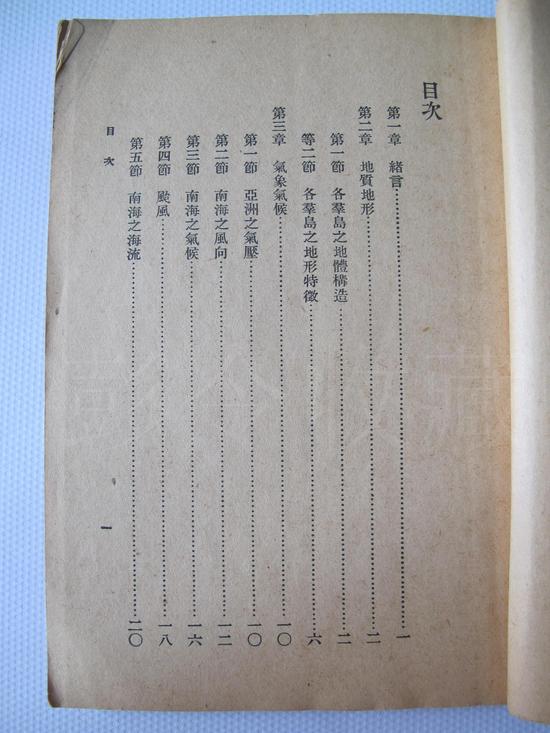 目次
第一章 緒言…………一
第二章 地質地形…………二
第一節 各羣島之地體構造…………二
等二節 各羣島之地形特徵…………六
第三章 氣象氣候…………一〇
第一節 亞洲之氣壓…………一〇
第二節 南海之風向…………一二
第三節 南海之氣候…………一六
第四節 颱風…………一八
第五節 南海之海流…………二〇
目次
一